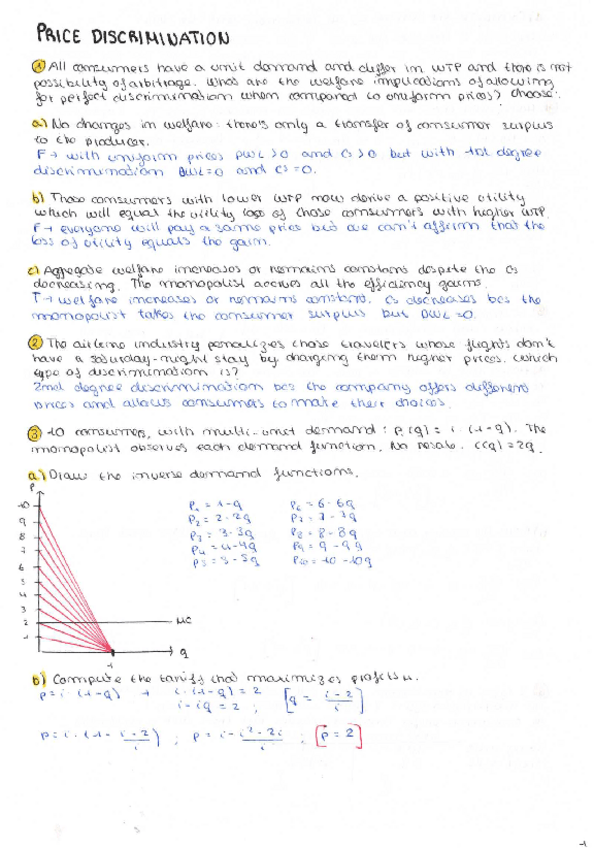 PRICE DISCRIMINATION
① All consumers have a unit demand and differ in WTP and there is not
possibility of arbitrage. What are the welfare implications of allowing
for perfect discrimination when compared to uniform prices? Choose:
a) No changes in welfare: there's only a transfer of consumer surplus
to the producer.
F → with uniform prices DWL > 0 and CS > 0 but with 1st degree
discrimination DWL = 0 and CS = 0.
b) Those consumers with lower WTP now derive a positive utility
which will equal the utility loss of those consumers with higher WTP.
F → everyone will pay a same price but we can't affirm that the
loss of utility equals the gain.
c) Aggregate welfare increases or remains constant despite the CS
decreasing. The monopolist accrues all the efficiency gains.
T → welfare increases or remains constant. CS decreases bcs the
monopolist takes the consumer surplus but DWL = 0.
② The airline industry penalizes those travelers whose flights don't
have a saturday-night stay by charging them higher prices. Which
type of discrimination is?
2nd degree discrimination bcs the company offers different
prices and allows consumers to make their choices.
③ 10 consumers, with multi-unit demand: Pi(q) = i · (1-q). The
monopolist observes each demand function. No resale. C(q) = 2q.
a) Draw the inverse demand functions.
P
10
9
8
7
6
5
4
3
2
1
MC
1
q
P1 = 1-q
P2 = 2-2q
P3 = 3-3q
P4 = 4-4q
P5 = 5-5q
P6 = 6-6q
P7 = 7-7q
P8 = 8-8q
P9 = 9-9q
P10 = 10-10q
b) Compute the tariff that maximizes profits.
p = i · (1-q) → i · (1-q) = 2
i - iq = 2 ; [q = i-2/i]
p = i · (1 - i-2/i) ; p = i - i²-2i/i ; [p = 2]
1